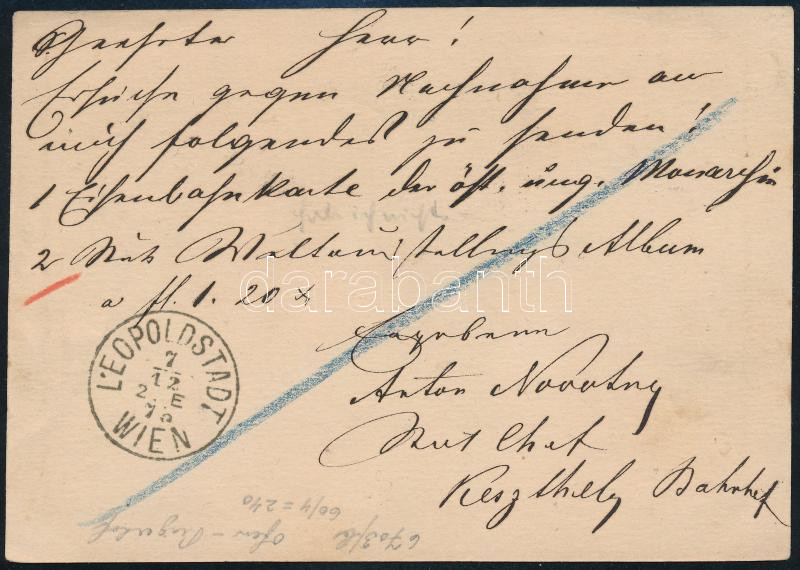 Geehrter Herr!
Ersuche gegen Nachnahme an
mich folgendes zu senden!
1 Eisenbahnkarte der öst. ung. Monarchie
2 Stück Weltausstellungs Album
a fl. 1. 20 x
darabanth
Ergebenn
Anton Novotny
Chef
Keszthely Bahnhof
LEOPOLDSTADT
7
12
2 E
75
WIEN
6703/2 Ofen -
60/4 = 240